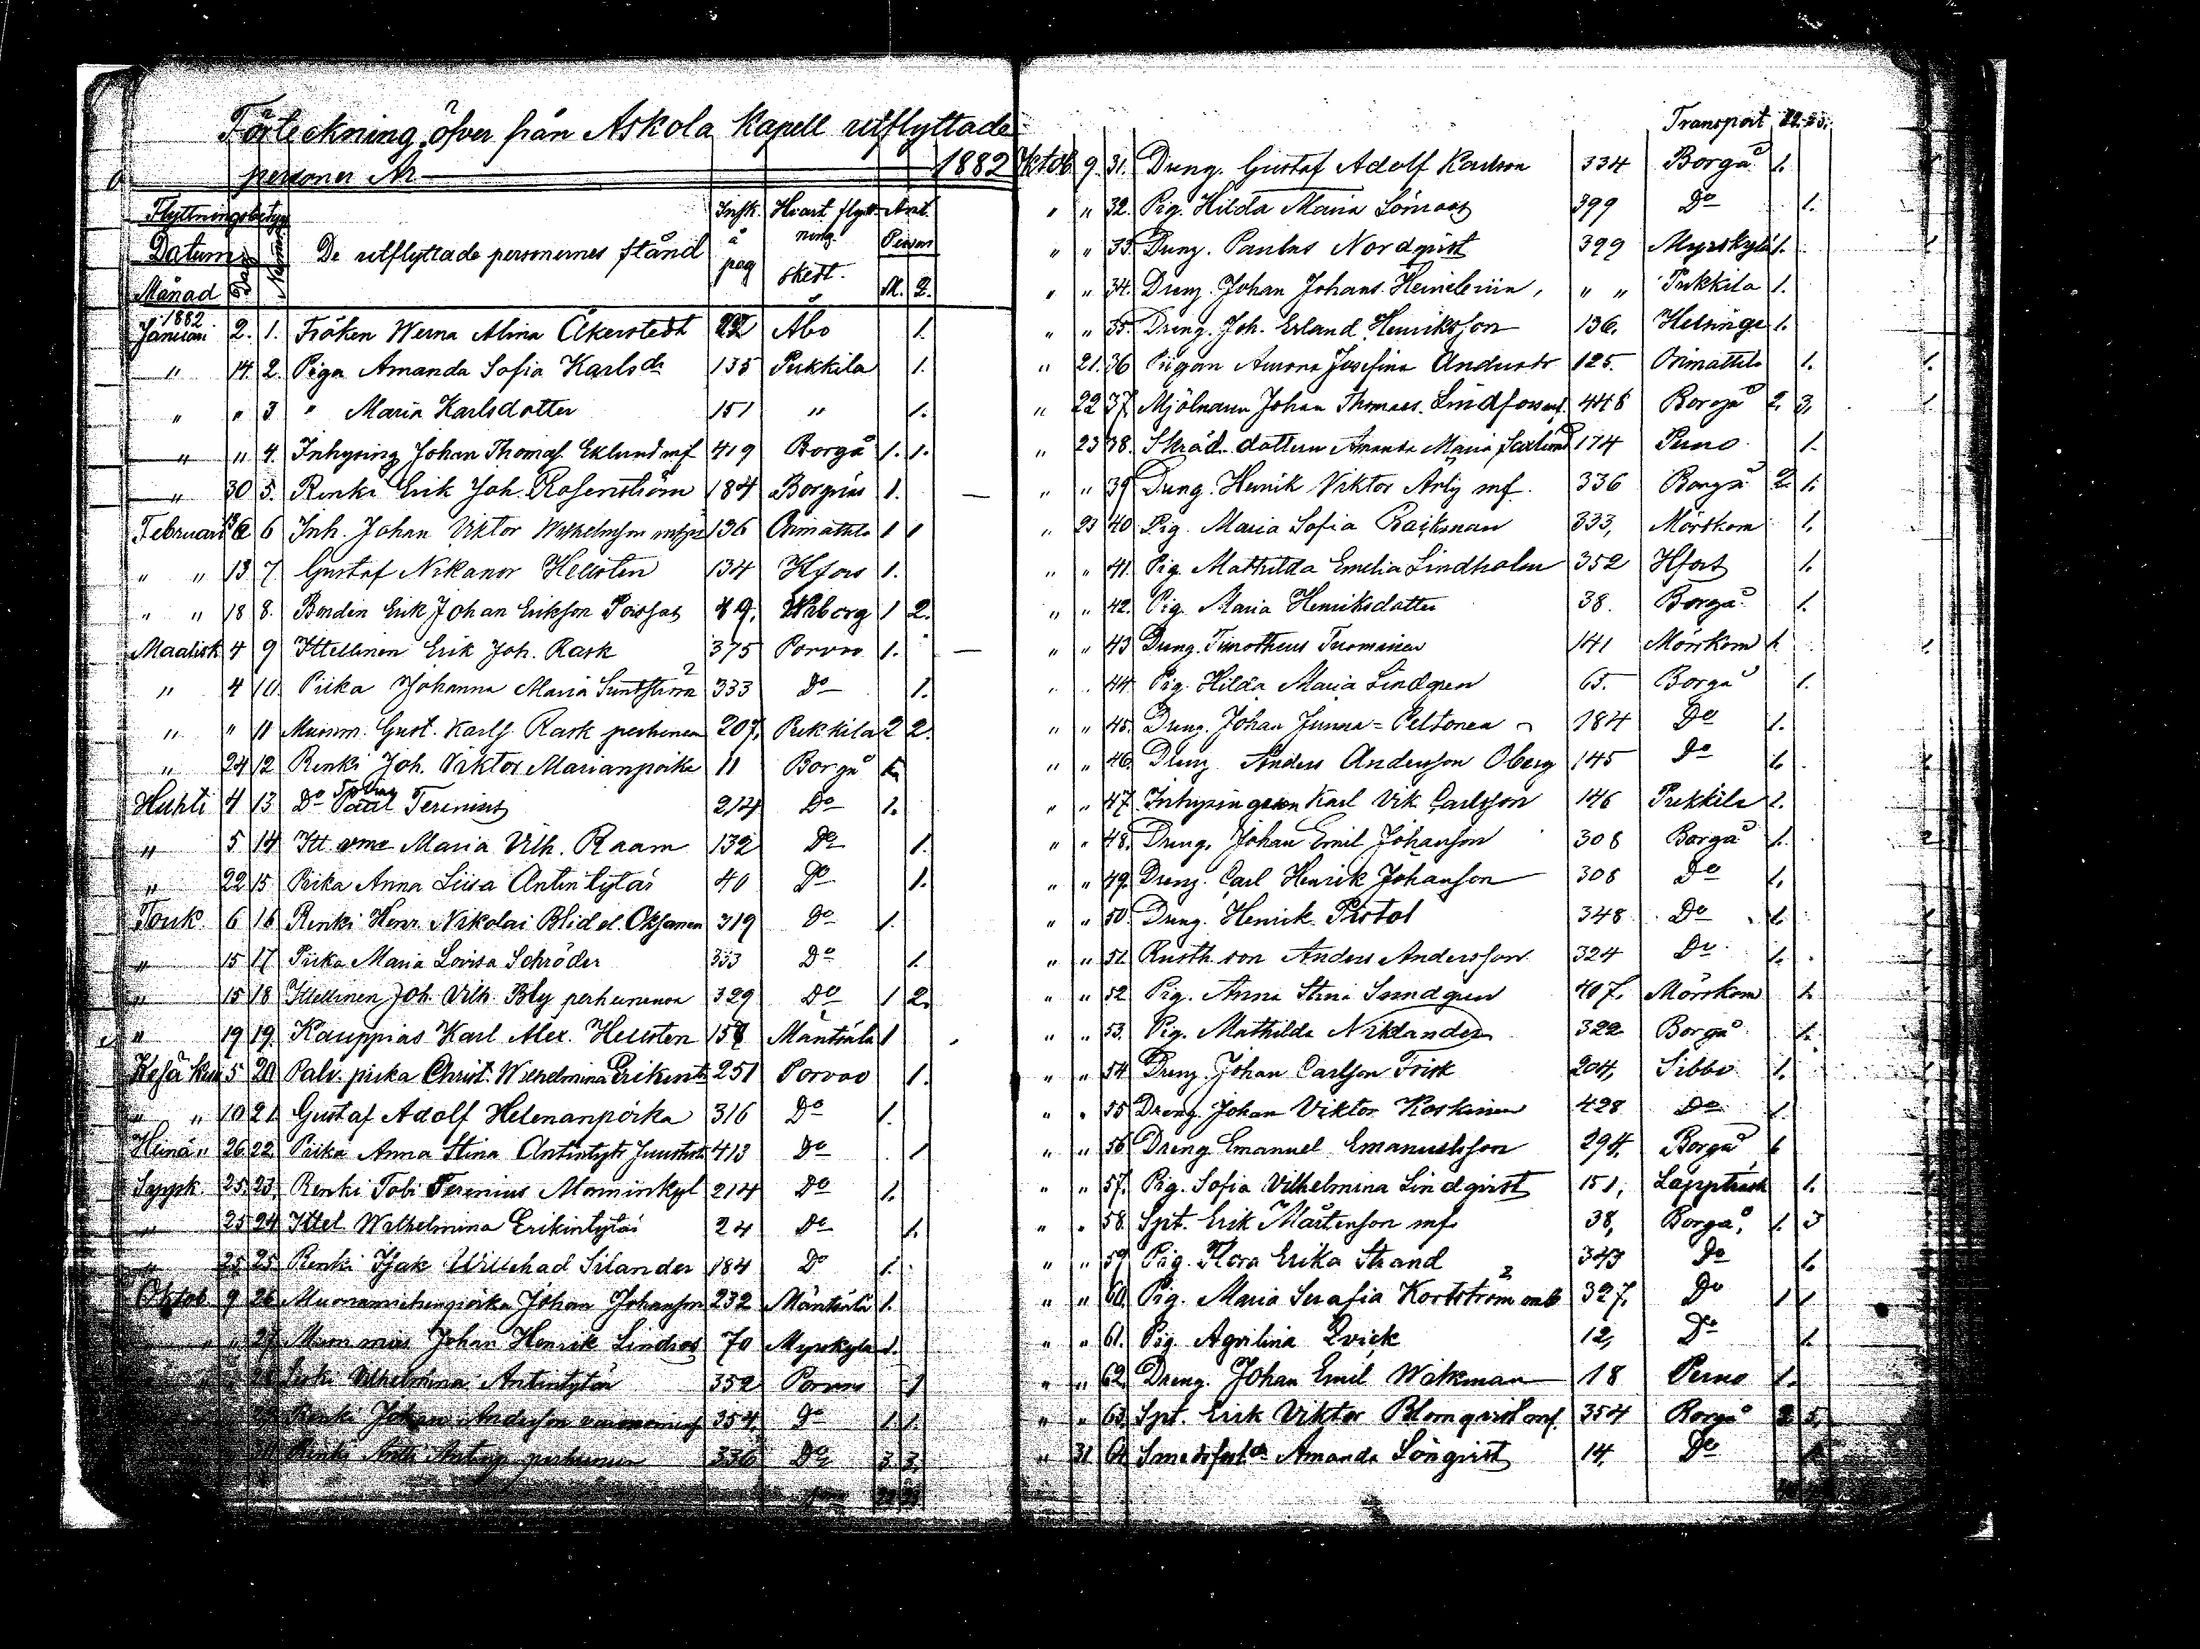 Förteckning öfver från Askola Kapell utflyttade
personer År 1882
Flyttningsbetyg
Datum
Månad
De utflyttade personernes stånd
Insk. å pag
Hvart flyttning skett.
Ant. Person
M. Q.
1882
Januari 2. 1. Fröken Werna Alina Åkerstedt 22 Åbo 1.
" 14. 2. Piga Amanda Sofia Karlsdr 135 Pukkila 1.
" " 3 " Maria Karlsdotter 151 " 1.
" " 4. Inhysing Johan Thomas. Eklund mf 419 Borgå 1. 1.
" 30 5. Renki Erik Joh. Rosenström 184 Borgnäs 1.
Februari 6 Inh. Johan Viktor Wilhelmsson 136 Orimattila 1 1
" " 13 7. Gustaf Nikanor Hellsten 134 Hfors 1.
" " 18 8. Bonden Erik Johan Erikson 89. Wiborg 1 2.
Maalisk 4 9 Ittellinen Erik Joh. Rask 375 Porvoo 1.
" 4 10. Piika Johanna Maria Suntström 333 Do 1.
" " 11 Muonm. Gust. Karls. Rask perheineen 207. Pukkila 2 2.
" 24 12 Renki Joh. Viktor Marianpoika 11 Borgå 1.
Huhti 4 13 Do Paul Terenius 214 Do 1.
" 5 14 Itt. Maria Vilh. Raam 132 Do 1.
" 22 15 Piika Anna Liisa Antintytär 40 Do 1.
Touk. 6 16 Renki Henr. Nikolai Blid el. Oksanen 319 Do 1.
" 15 17 Piika Maria Lovisa Schröder 333 Do 1.
" 15 18 Ittellinen Joh. Vilh. Bly perheinensa 329 Do 1 2.
" 19 19. Kauppias Karl Alex. Hellsten Mäntsälä 1
Kesäkuu 5 20 Palv. piika Christ. Wilhelmina Erikint. 251 Porvoo 1.
" " 10 21 Gustaf Adolf Helenanpoika 316 Do 1.
Heinä " 26 22. Piika Anna Stina Antintytr 413 Do 1
Syysk. 25. 23. Renki Tobi Terenius Monninkyl 214 Do 1.
" 25 24 Ittel Wilhelmina Erikintytär 24 Do 1.
" 25 25. Renki Isak Willehad Silander 184 Do 1.
Oktob 9 26 Johan Johansson 232 Mäntsälä 1.
" " 27. Johan Henrik Lindroos 70 Myrskylä 1.
Vilhelmina Antintytär 352 Porvoo 1
Renki Johan Andersson 354 Do 1. 1.
Renki perheineen 336 Do 3 3.
Transport 22. 25.
Oktob 9. 31. Dreng. Gustaf Adolf Karlson 334 Borgå 1.
" " 32. Pig. Hilda Maria 399 Do 1.
" " 33. Dreng. Paulus Nordqvist 399 Myrskylä 1.
" " 34. Dreng. Johan Johans. " " Pukkila 1.
" " 35. Dreng. Joh. Erland Henriksson 136. Helsinge 1.
" 21. 36 Pigan Aurora Josefina Andersdr 125. Orimattila 1.
" 22 37. Mjölnaren Johan Thomas. Lindfors mf. 446 Borgå 2. 3.
" 23 38. Skräd. dottern Amanda Maria 174 Perno 1.
" " 39 Dreng. Henrik Viktor Ärly mf. 336 Borgå 2. 1.
" 23 40. Pig. Maria Sofia 333, Mörskom 1.
" " 41. Pig. Mathilda Emelia Lindholm 352 Hfors 1.
" " 42. Pig. Maria Henriksdotter 38. Borgå 1.
" " 43 Dreng. Timotheus Tuominen 141 Mörskom 1.
" " 44. Pig. Hilda Maria Lindgren 65. Borgå 1.
" " 45. Dreng. Johan Junna = Peltonen 184 Do 1.
" " 46. Dreng Anders Andersson Öberg 145 Do 1.
" " 47. Inhysingson Karl Vik. Carlsson 146 Pukkila 1.
" " 48. Dreng. Johan Emil Johanson 308 Borgå 1.
" " 49. Dreng. Carl Henrik Johanson 308 Do 1.
" " 50. Dreng. Henrik Pistol 348 Do 1.
" " 51. Rusth. son Anders Andersson 324 Do 1.
" " 52 Pig. Anna Stina Sundgren 407. Mörskom 1.
" " 53. Pig. Mathilda Niklander 322 Borgå 1.
" " 54. Dreng. Johan Carlsson Frisk 204, Sibbo 1.
" " 55 Dreng. Johan Viktor Koskinen 428 Do 1.
" " 56. Dreng Emanuel Emanuelsson 294. Borgå 1
" " 57. Pig. Sofia Vilhelmina Lindqvist 151, Lappträsk 1.
" " 58. Spt. Erik Mårtenson mf. 38, Borgå, 1. 3
" " 59. Pig. Flora Erika Strand 343 Do 1.
" " 60. Pig. Maria Serafia Kortström 327. Do 1 1
" " 61. Pig. Agvilina Qvick 12, Do 1.
" " 62. Dreng. Johan Emil Wikman 18 Perno 1.
" " 63. Spt. Erik Viktor Blomqvist mf. 354 Borgå 2 5.
" 31 64 Amanda Lönqvist 14. Do